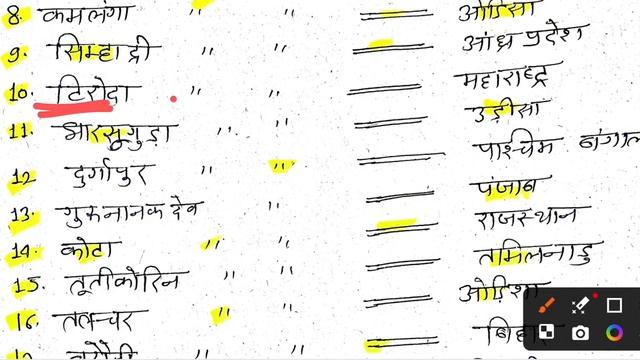 8. कमलंगा " " ओडिसा
9. सिम्हाद्री " " आंध्र प्रदेश
10. टिरोदा " " महाराष्ट्र
11. झारसुगुड़ा " " उड़ीसा
12 दुर्गापुर " " पाश्चिम बंगाल
13. गुरुनानक देव " " पंजाब
14. कोटा " " राजस्थान
15. तूतीकोरिन " " तमिलनाडु
16. तलच्चर " " ओड़िशा
" " बिहार